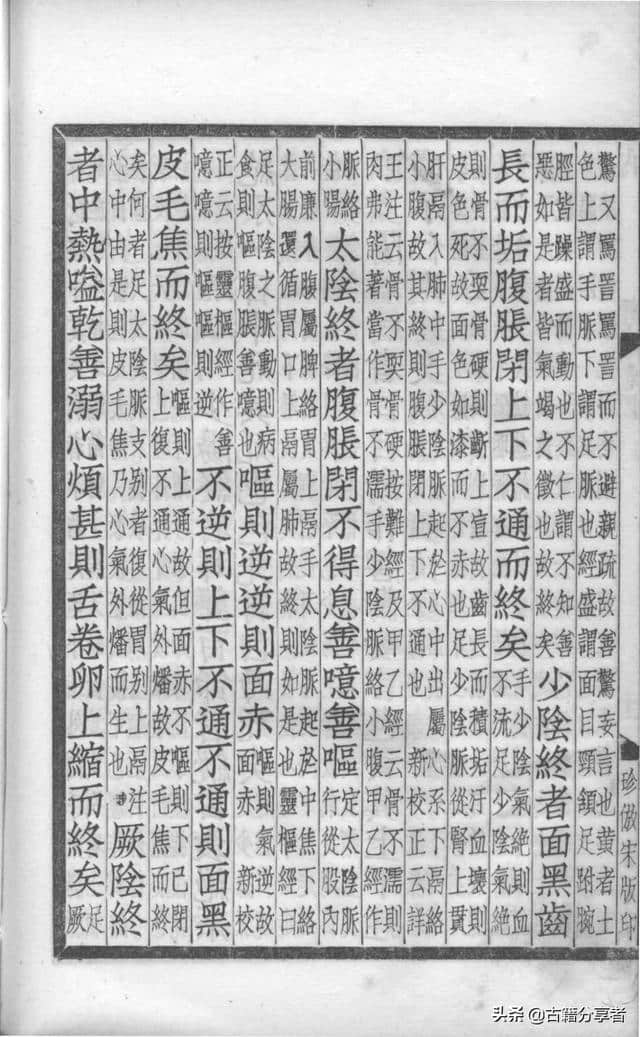 驚又罵詈罵詈而不避親疏故善驚妄言也黃者土
色上謂手脈下謂足脈也經盛謂面目頸頷足跗腕
脛皆躁盛而動也不仁謂不知善
惡如是者皆氣竭之徵也故終矣
少陰終者面黑齒
長而垢腹脹閉上下不通而終矣
手少陰氣絕則血
不流足少陰氣絕
則骨不耎骨硬則齗上宣故齒長而積垢汗血壞則
皮色死故面色如漆而不赤也足少陰脈從腎上貫
肝鬲入肺中手少陰脈起於心中出屬心系下鬲絡
小腹故其終則腹脹閉上下不通也 新校正云詳
王注云骨不耎骨硬按難經及甲乙經云骨不濡則
肉弗能著當作骨不濡手少陰脈絡小腹甲乙經作
脈絡
小腸
太陰終者腹脹閉不得息善噫善嘔
定太陰脈
行從股內
前廉入腹屬脾絡胃上鬲手太陰脈起於中焦下絡
大腸還循胃口上鬲屬肺故終則如是也靈樞經曰
足太陰之脈動則病
食則嘔腹脹善噫也
嘔則逆逆則面赤
嘔則氣逆故
面赤 新校
正云按靈樞經作善
噫噫則嘔嘔則逆
不逆則上下不通不通則面黑
皮毛焦而終矣
嘔則上通故但面赤不嘔則下已閉
上復不通心氣外燔故皮毛焦而終
矣何者足太陰脈支別者復從胃別上鬲注
心中由是則皮毛焦乃心氣外燔而生也
厥陰終
者中熱嗌乾善溺心煩甚則舌卷卵上縮而終矣
足
厥
珍倣宋版印
头条 @古籍分享者